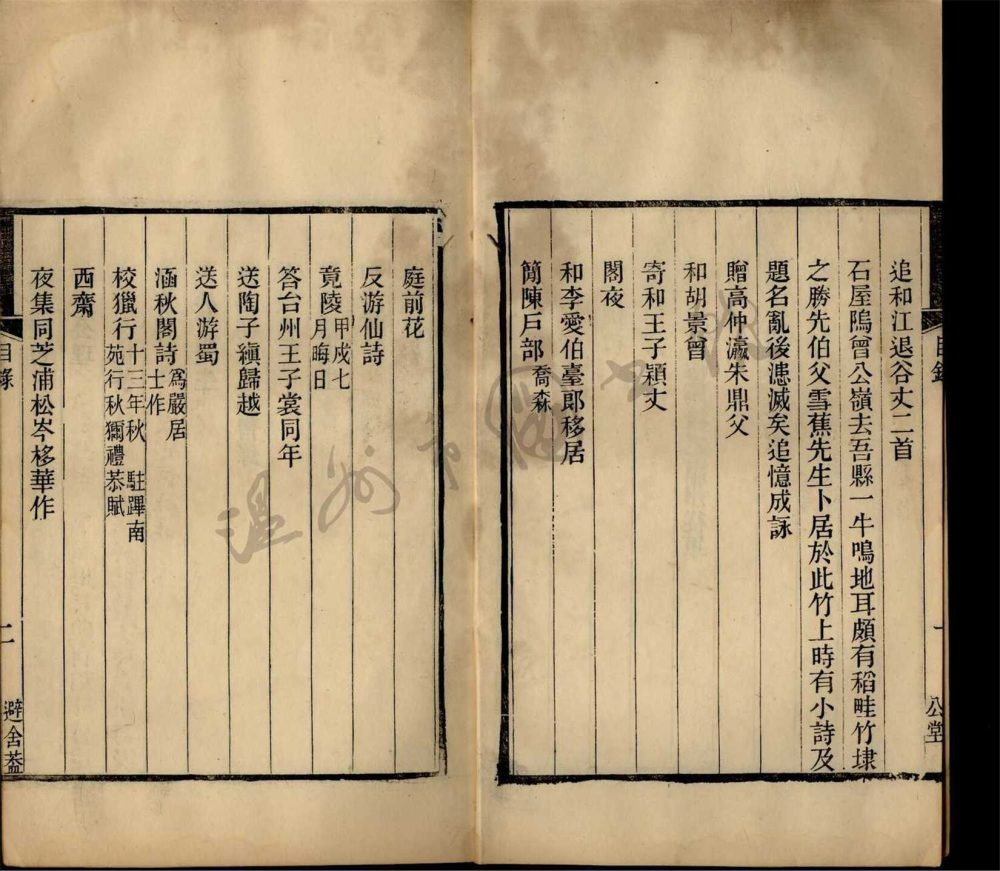 追和江退谷丈二首
石屋隝曾公嶺去吾縣一牛鳴地耳頗有稻畦竹埭
之勝先伯父雪蕉先生卜居於此竹上時有小詩及
題名亂後漶滅矣追憶成詠
贈高仲瀛朱鼎父
和胡景曾
寄和王子潁丈
閣夜
和李愛伯臺郞移居
簡陳戸部喬森
目錄
公堂
庭前花
反游仙詩
竟陵甲戌七月晦日
答台州王子裳同年
送陶子縝歸越
送人游蜀
涵秋閣詩爲嚴居士作
校獵行十三年秋 駐蹕南苑行秋獮禮恭賦
西齋
夜集同芝浦松岑栘華作
目錄
二
避舍葢
溫州市圖